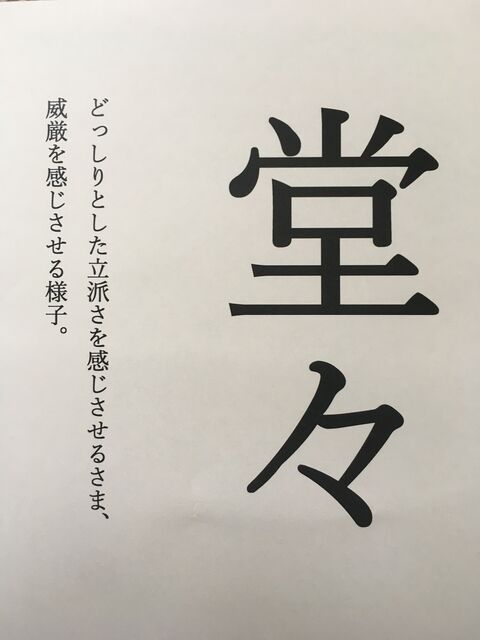 堂々
どっしりとした立派さを感じさせるさま、
威厳を感じさせる様子。